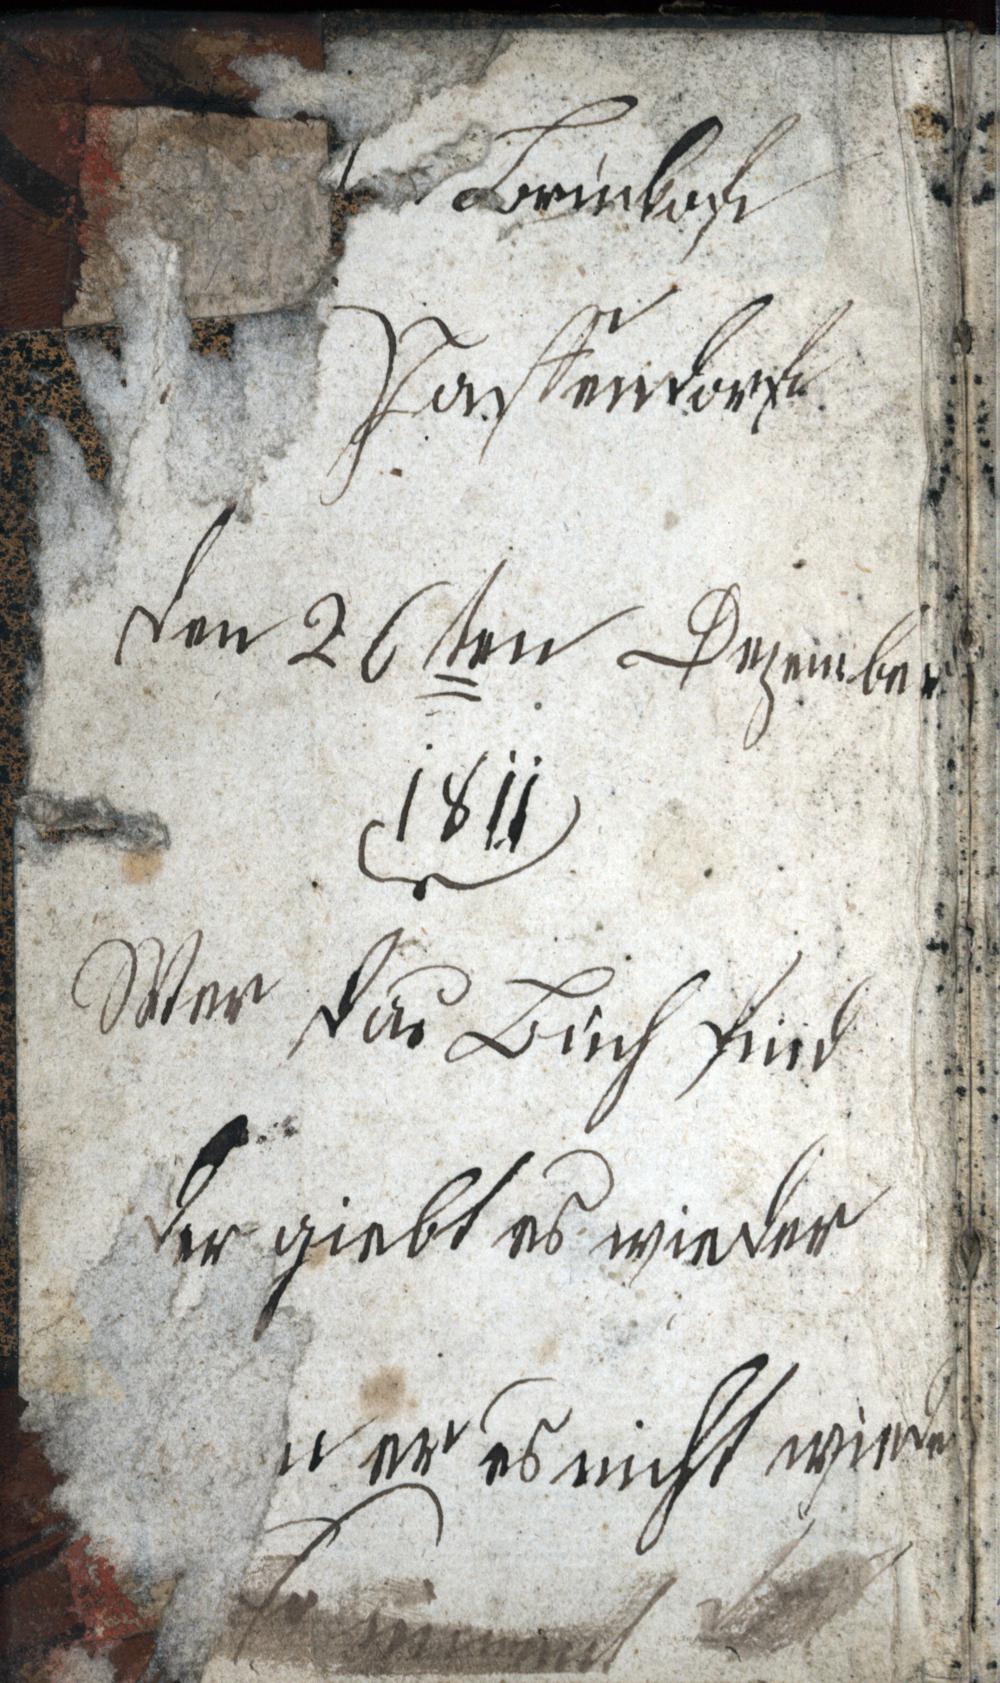 Passendorf
den 26ten Dezember
1811
Wer das Buch find
der giebt es wieder
er es nicht wiede